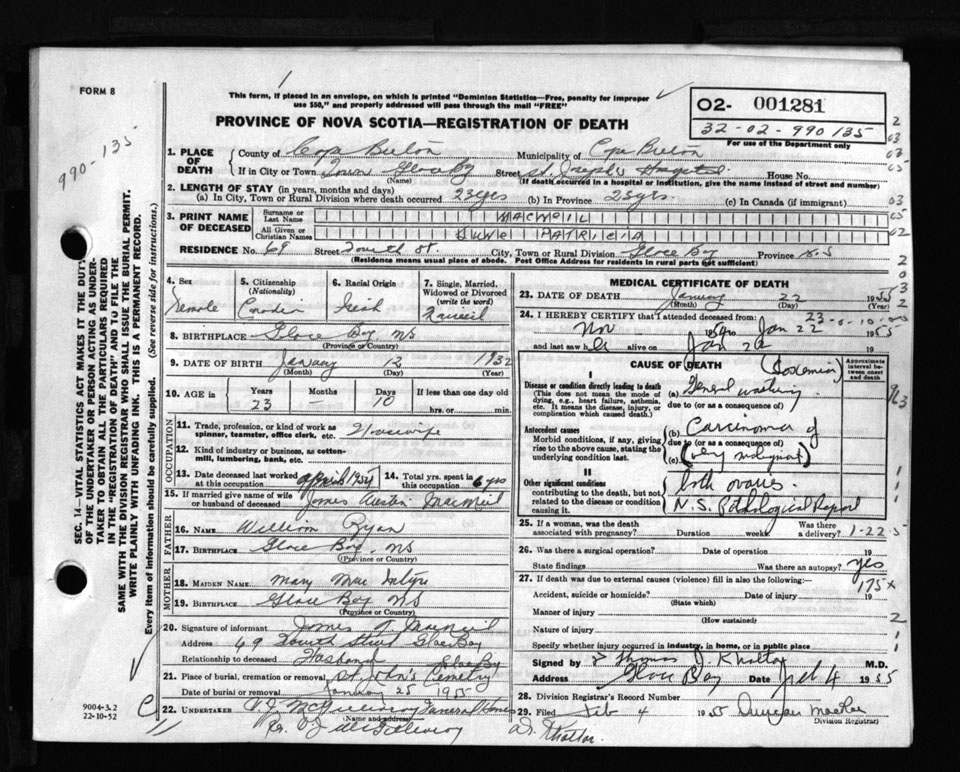 FORM 8
This form, if placed in an envelope, on which is printed "Dominion Statistics—Free, penalty for improper
use $50," and properly addressed will pass through the mail "FREE"
PROVINCE OF NOVA SCOTIA—REGISTRATION OF DEATH
02- 001281
32-02-990135
For use of the Department only
990-135
1. PLACE OF DEATH County of Cape Breton Municipality of Cape Breton
If in City or Town Town Glace Bay Street St. Joseph's Hospital House No.
(Name) (If death occurred in a hospital or institution, give the name instead of street and number)
2. LENGTH OF STAY (in years, months and days)
(a) In City, Town or Rural Division where death occurred 23 yrs (b) In Province 23 yrs. (c) In Canada (if immigrant)
3. PRINT NAME OF DECEASED Surname or Last Name MACNEIL
All Given or Christian Names JUNE PATRICIA
RESIDENCE No. 69 Street Fourth St. City, Town or Rural Division Glace Bay Province N.S
(Residence means usual place of abode. Post Office Address for residents in rural parts not sufficient)
4. Sex Female
5. Citizenship (Nationality) Canadian
6. Racial Origin Irish
7. Single, Married, Widowed or Divorced (write the word) Married
8. BIRTHPLACE Glace Bay NS
(Province or Country)
9. DATE OF BIRTH January 1932
(Month) (Day) (Year)
10. AGE in Years Months Days If less than one day
23 – 10 hrs. or min.
OCCUPATION
11. Trade, profession or kind of work as spinner, teamster, office clerk, etc. Housewife
12. Kind of industry or business, as cotton-mill, lumbering, bank, etc.
13. Date deceased last worked at this occupation 1954 14. Total yrs. spent in this occupation 6 yrs
15. If married give name of wife or husband of deceased James Austin MacNeil
FATHER
16. NAME William Ryan
17. BIRTHPLACE Glace Bay NS
(Province or Country)
MOTHER
18. MAIDEN NAME Mary MacIntyre
19. BIRTHPLACE Glace Bay NS
(Province or Country)
20. Signature of informant James A. MacNeil
Address 69 Fourth Street Glace Bay
Relationship to deceased Husband Glace Bay
21. Place of burial, cremation or removal St. John's Cemetery
Date of burial or removal January 25 1955
22. UNDERTAKER V.J. McGillivray Funeral Home
(Name and address)
Per. V.J. McGillivray
MEDICAL CERTIFICATE OF DEATH
23. DATE OF DEATH January 22 1955
(Month) (Day)
24. I HEREBY CERTIFY that I attended deceased from:
Nov 1954 to Jan 22 1955
and last saw h er alive on Jan 22 19
CAUSE OF DEATH
Approximate interval between onset and death
I
Disease or condition directly leading to death
(This does not mean the mode of dying, e.g., heart failure, asthenia, etc. It means the disease, injury, or complication which caused death.)
(a) General wasting
due to (or as consequence of)
Antecedent causes
Morbid conditions, if any, giving rise to the above cause, stating the underlying condition last.
(b) Carcinoma of
due to (or as consequence of)
(c) (very malignant)
II
Other significant conditions
contributing to the death, but not related to the disease or condition causing it.
both ovaries.
N.S. Pathological Report
25. If a woman, was the death associated with pregnancy? Duration weeks Was there a delivery?
1-22-5
26. Was there a surgical operation? Date of operation 19
State findings Was there an autopsy? yes
27. If death was due to external causes (violence) fill in also the following:—
175x
Accident, suicide or homicide? Date of injury 19
(State which)
Manner of injury
(How sustained)
Nature of injury
Specify whether injury occurred in industry, in home, or in public place
Signed by Thomas J. Khattar M.D.
Address Glace Bay Date Feb 4 1955
28. Division Registrar's Record Number
29. Filed Feb 4 1955 Duncan MacRae
Division Registrar
Khattar.
SEC. 14—VITAL STATISTICS ACT MAKES IT THE DUTY
OF THE UNDERTAKER OR PERSON ACTING AS UNDER-
TAKER TO OBTAIN ALL THE PARTICULARS REQUIRED
IN THE "REGISTRATION OF DEATH" AND TO FILE THE
SAME WITH THE DIVISION REGISTRAR WHO SHALL ISSUE THE BURIAL PERMIT.
WRITE PLAINLY WITH UNFADING INK. THIS IS A PERMANENT RECORD.
Every item of information should be carefully supplied. (See reverse side for instructions.)
9004-3.2
22-10-52